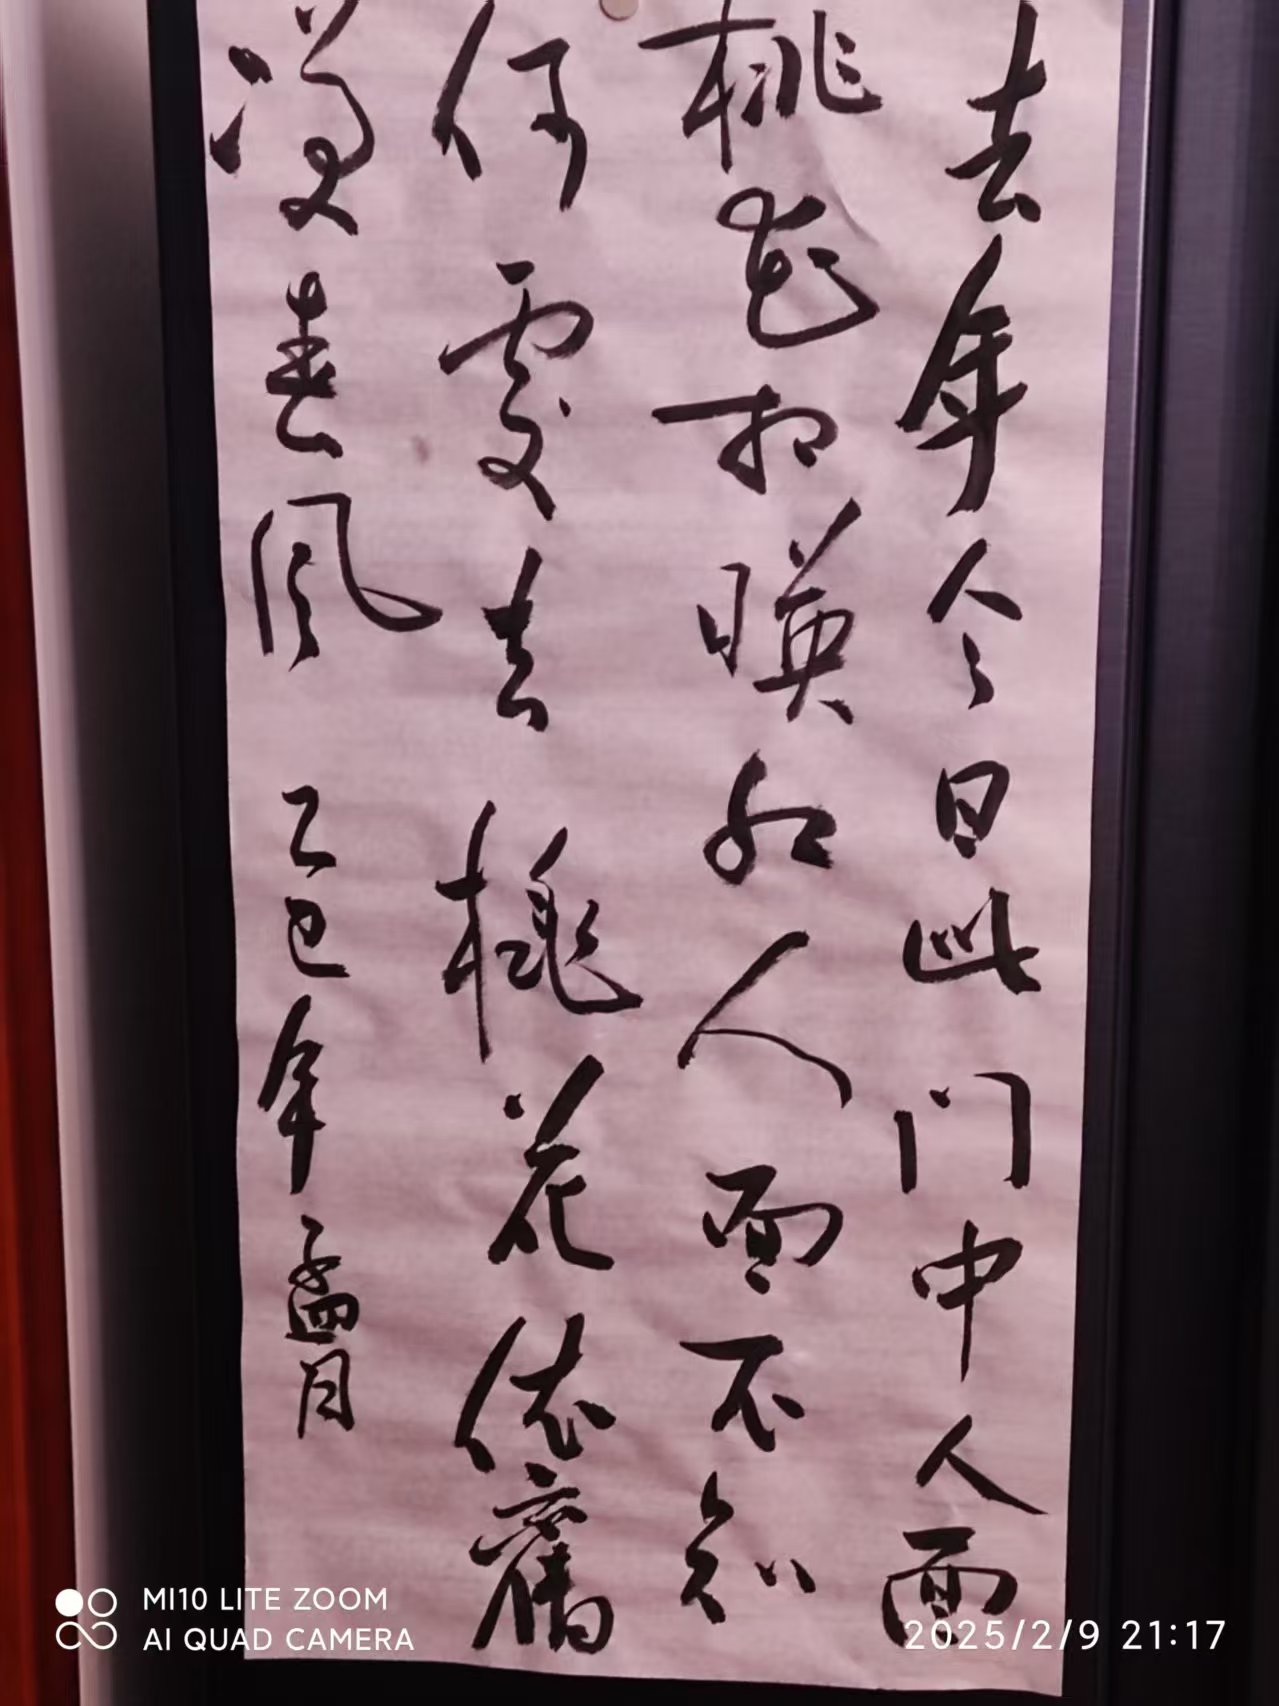 去年今日此门中人面
桃花相暎红人面不知
何處去桃花依舊
笑春风乙巳年孟月
MI10 LITE ZOOM
AI QUAD CAMERA
2025/2/9 21:17